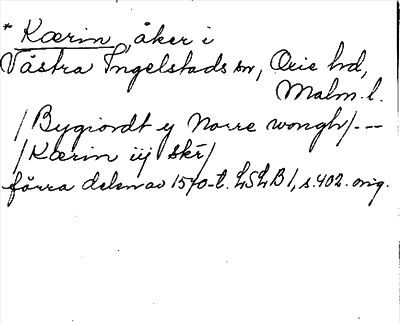 * Kærin, åker i
Västra Ingelstads sn, Oxie hd,
Malm. l.
/Bygiordt y Norre wongh/. --
/Kærin iij skr/
förra delen av 1570-t. LSLB 1, s. 402. orig.